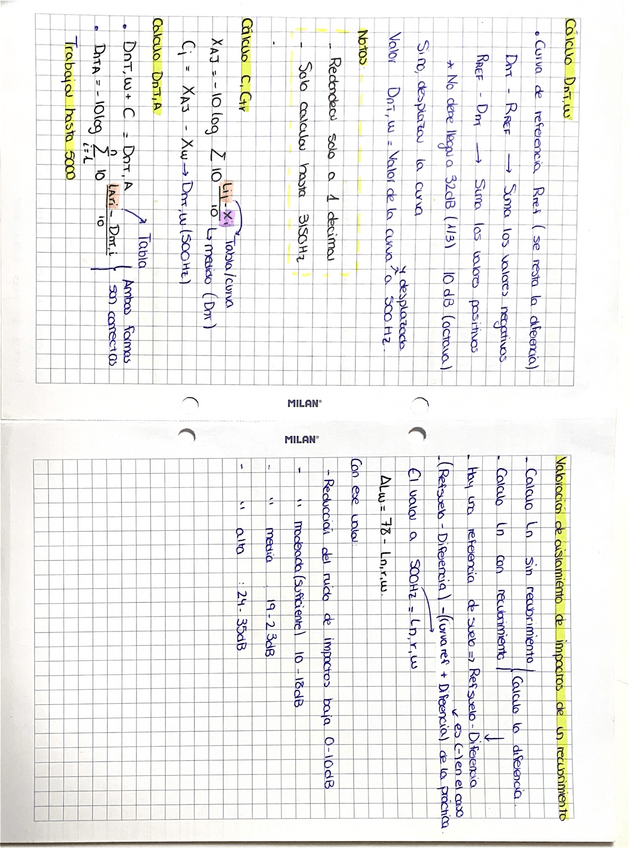 Cálculo DnT,w
• Curva de referencia Rref (se resta la diferencia)
DnT - RREF → Suma los valores negativos
RREF - DnT → Suma los valores positivos
* No debe llegar a 32dB (1/3) 10 dB (octava)
Sino, desplazar la curva
Valor DnT,w = Valor de la curva desplazada a 500 Hz.
Notas
- Redondear solo a 1 decimal
- Solo calcular hasta 3150Hz
Cálculo C, Ctr
XAJ = -10 log Σ 10 Lij - Xi / 10
Tabla/curva
↳ medido (DnT)
Cj = XAJ - Xw → DnT,w (500Hz)
Cálculo DnT,A
• DnT,w + C = DnT,A
• DnTA = -10 log Σ 10 LAri - DnT,i / 10
n
i=1
Tabla
Ambas formas
son correctas
Trabajar hasta 5000
MILAN®
MILAN®
Valoración de aislamiento de impactos de un recubrimiento
- Cálculo Ln sin recubrimiento
- Cálculo Ln con recubrimiento
Calcula la diferencia.
- Hay una referencia de suelo => Refsuelo - Diferencia
↙ es (-) en el caso
- (Refsuelo - Diferencia) - (curva ref + Diferencia) de la práctica.
El valor a 500Hz = Ln,r,w
ΔLw = 78 - Ln,r,w.
Con ese valor
- Reducción del ruido de impactos baja 0-10dB
- " moderada (suficiente) 10 - 18dB
- " media : 19 - 23dB
- " alta : 24 - 35dB